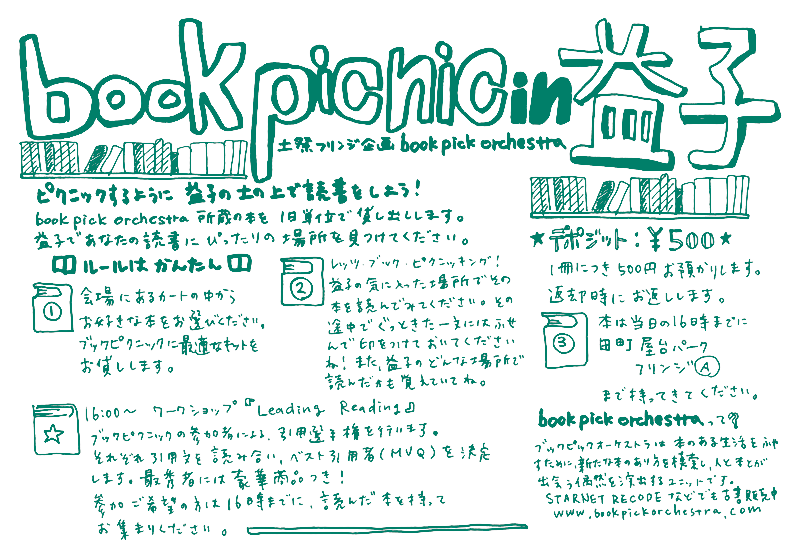 book picnic in 益子
土祭フリンジ企画 book pick orchestra
ピクニックするように 益子の土の上で読書をしよう!
book pick orchestra 所蔵の本を 1日単位で貸し出しします。
益子であなたの読書に ぴったりの場所を見つけてください。
ルールは かんたん
①
会場にあるカートの中から
お好きな本をお選びください。
ブックピクニックに最適なキットを
お貸しします。
②
レッツ・ブック・ピクニッキング!
益子の気に入った場所でその
本を読んでみてください。その
途中でぐっときた一文にはふせ
んで印をつけておいてください
ね! また、益子のどんな場所で
読んだかも覚えていてね。
★デポジット:¥500★
1冊につき500円お預かりします。
返却時にお返しします。
③
本は当日の16時までに
田町 屋台パーク
フリンジⒶ
まで持ってきてください。
16:00〜 ワークショップ『Leading Reading』
ブックピクニックの参加者による、引用選手権を行います。
それぞれ引用文を読み合い、ベスト引用者(MVQ)を決定
します。最優秀には豪華商品つき!
参加ご希望の方は16時までに、読んだ本を持って
お集まりください。
book pick orchestra って?
ブックピックオーケストラは 本のある生活をふや
すために、新たな本のあり方を模索し、人と本とが
出会う偶然を演出するユニットです。
STARNET RECODE などでも古書販売中
www.bookpickorchestra.com